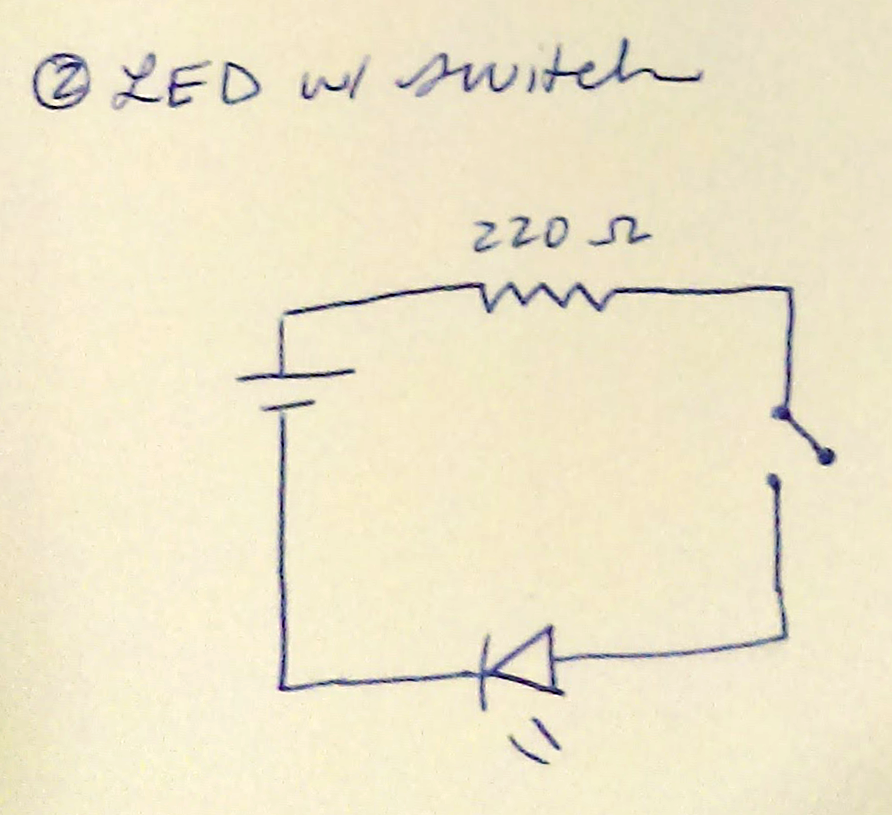 ② LED w/ switch
220 Ω